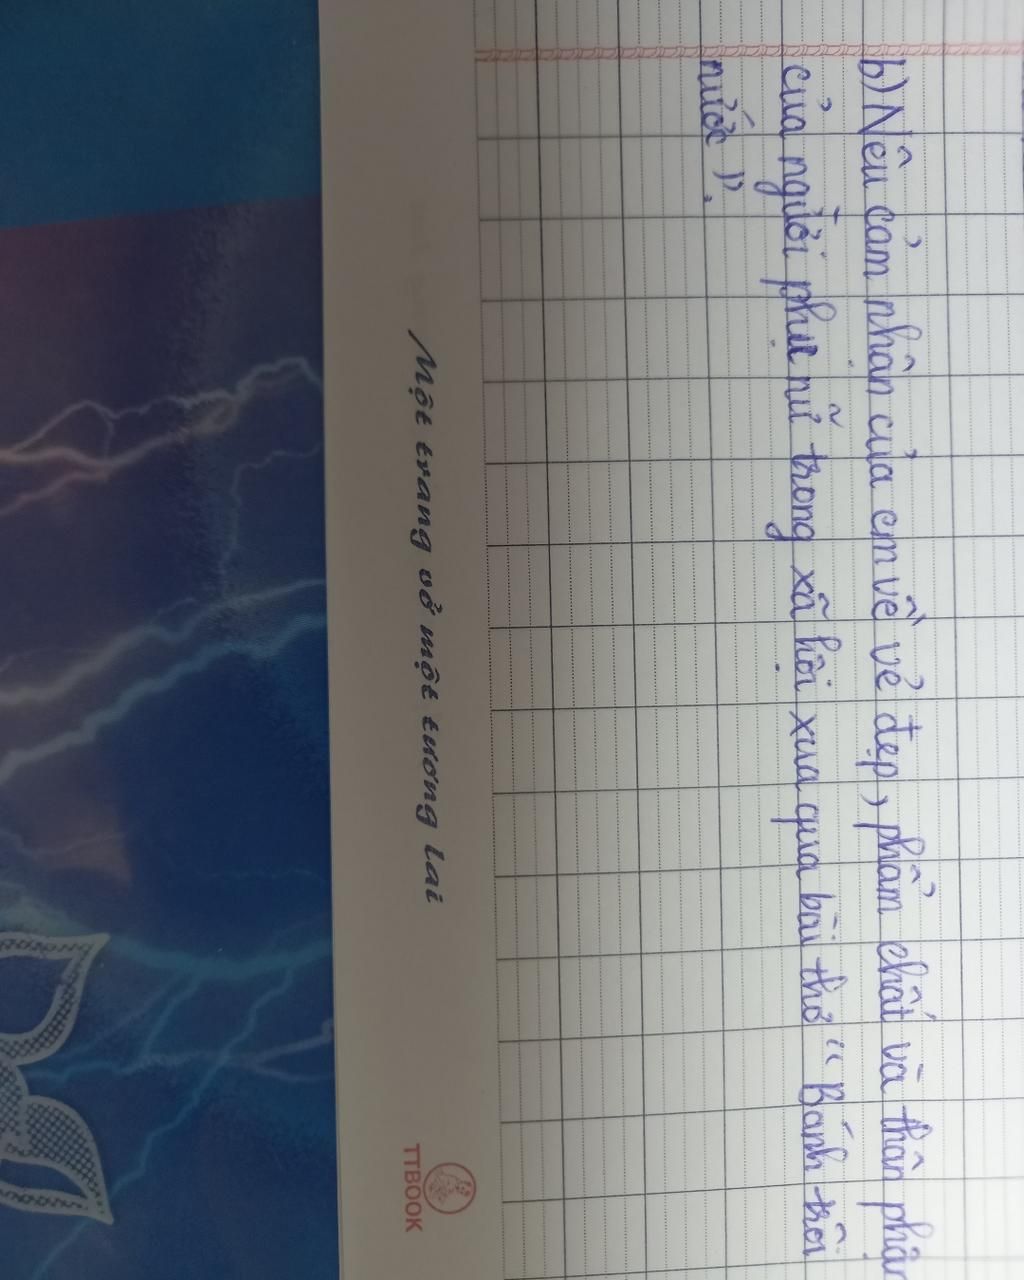 b) Nêu cảm nhận của em về vẻ đẹp, phẩm chất và thân phận
của người phụ nữ trong xã hội xưa qua bài thơ "Bánh trôi
nước".
Một trang vở một tương lai
TTBOOK